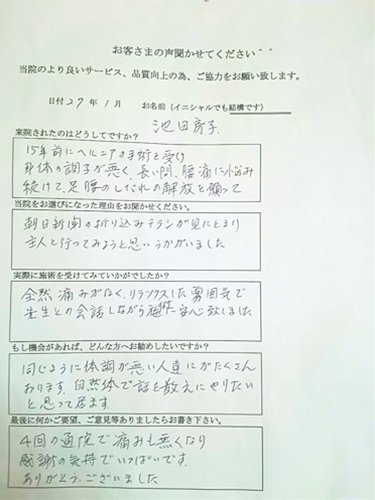 お客さまの声聞かせてください^^
当院のより良いサービス、品質向上の為、ご協力をお願い致します。
日付27年1月 お名前（イニシャルでも結構です）
池田房子
来院されたのはどうしてですか？
15年前にヘルニアの手術を受け
身体の調子が悪く、長い間、腰痛に悩み
続けて、足腰のしびれの解放を願って
当院をお選びになった理由をお聞かせください。
朝日新聞の折り込みチラシが目にとまり
主人と行ってみようと思いうかがいました
実際に施術を受けてみていかがでしたか？
全然痛みがなく、リラックスした雰囲気で
先生との会話しながら 安心致しました
もし機会があれば、どんな方へお勧めしたいですか？
同じように体調が悪い人達にがたくさん
おります。自然体で話を教えにやりたい
と思って居ます。
最後に何かご要望、ご意見等ありましたらお書き下さい。
4回の通院で痛みも無くなり
感謝の気持でいっぱいです。
ありがとうございました